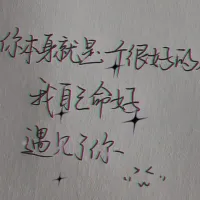 你本身就是一个很好的人
我自己命好
遇见了你~